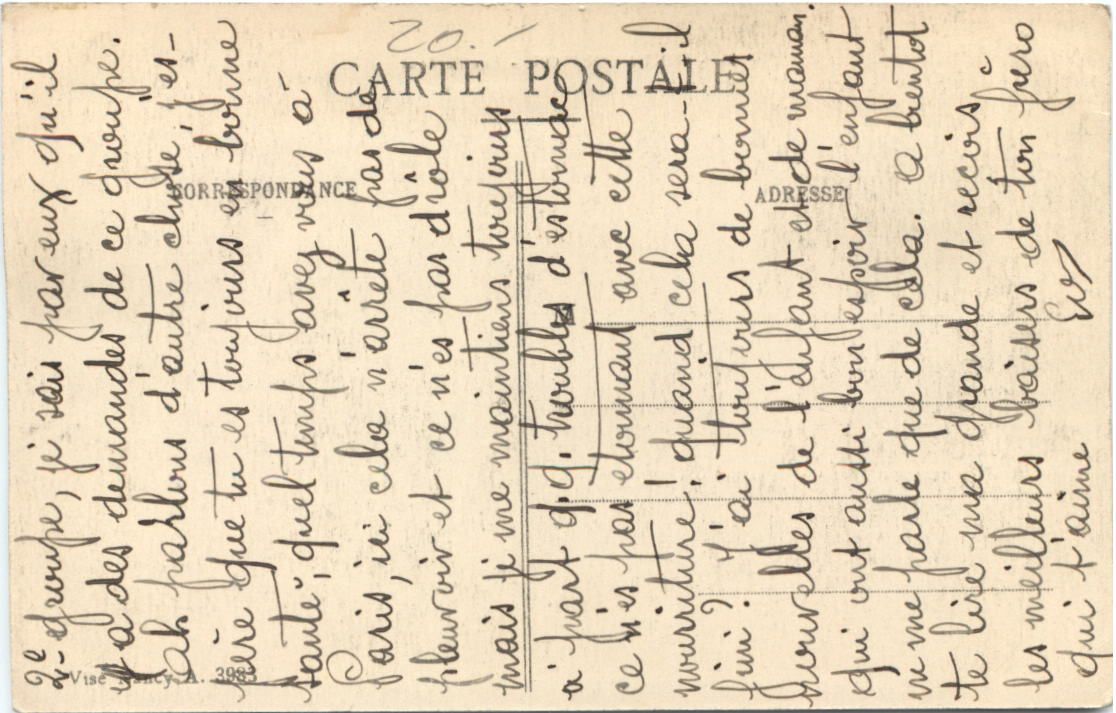 20.-
CARTE POSTALE
CORRESPONDANCE
ADRESSE
Visé Nancy A. 3983
2e groupe, je sais par eux qu'il
y a des demandes de ce groupe.
Ah parlons d'autre chose j'es-
père que tu es toujours en bonne
santé, quel temps avez vous à
Paris, ici cela n'arrête pas de
pleuvoir et ce n'es pas drôle
mais je me maintiens toujours
à part q.q. troubles d'estomac
ce n'es pas étonnant avec cette
nourriture!! quand cela sera-t-il
fini? J'ai toujours de bonnes
nouvelles de l'enfant et de maman.
qui ont aussi bon espoir l'enfant
ne me parle que de cela. A bientôt
te lire ma grande et reçois
les meilleurs baisers de ton frero
qui t'aime